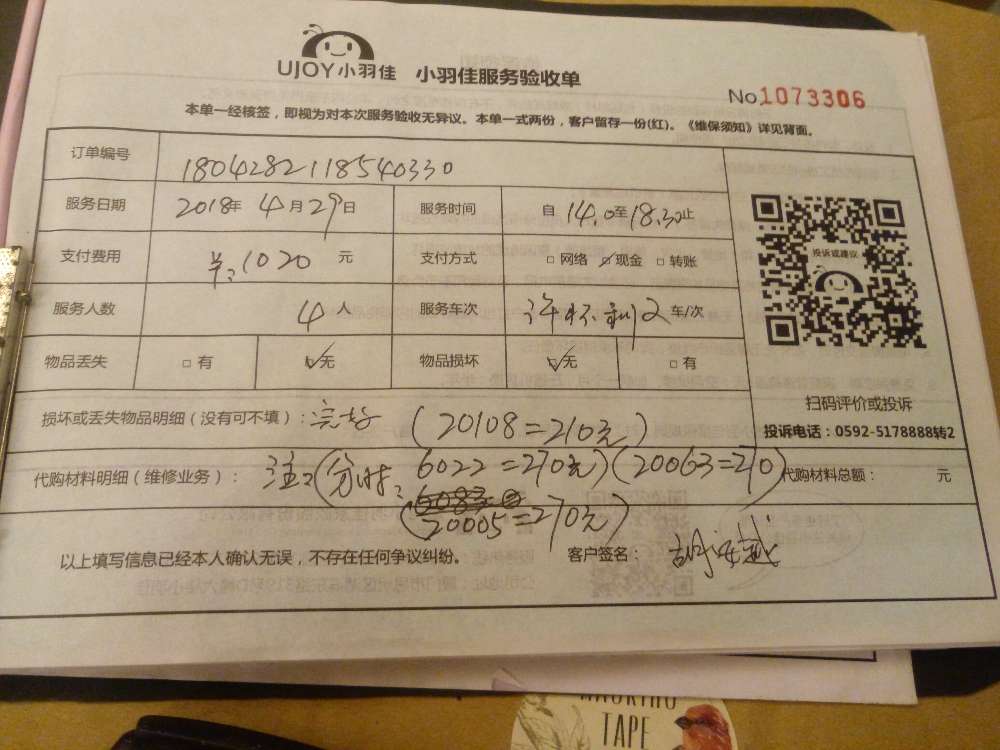 UJOY小羽佳 小羽佳服务验收单
No1073306
本单一经核签，即视为对本次服务验收无异议。本单一式两份，客户留存一份(红)。《维保须知》详见背面。
订单编号 1804282118540330
服务日期 2018年4月29日 服务时间 自14.0至18.30止
支付费用 1020元 支付方式 □网络 ☑现金 □转账
投诉或建议
服务人数 4人 服务车次 2车/次
物品丢失 □有 ☑无 物品损坏 ☑无 □有
扫码评价或投诉
损坏或丢失物品明细（没有可不填）：完好 (20108=210元)
投诉电话：0592-5178888转2
代购材料明细（维修业务）：注:(分时: 6022=270元)(20063=270) 代购材料总额： 元
(20005=270元)
以上填写信息已经本人确认无误，不存在任何争议纠纷。 客户签名：
TAPE